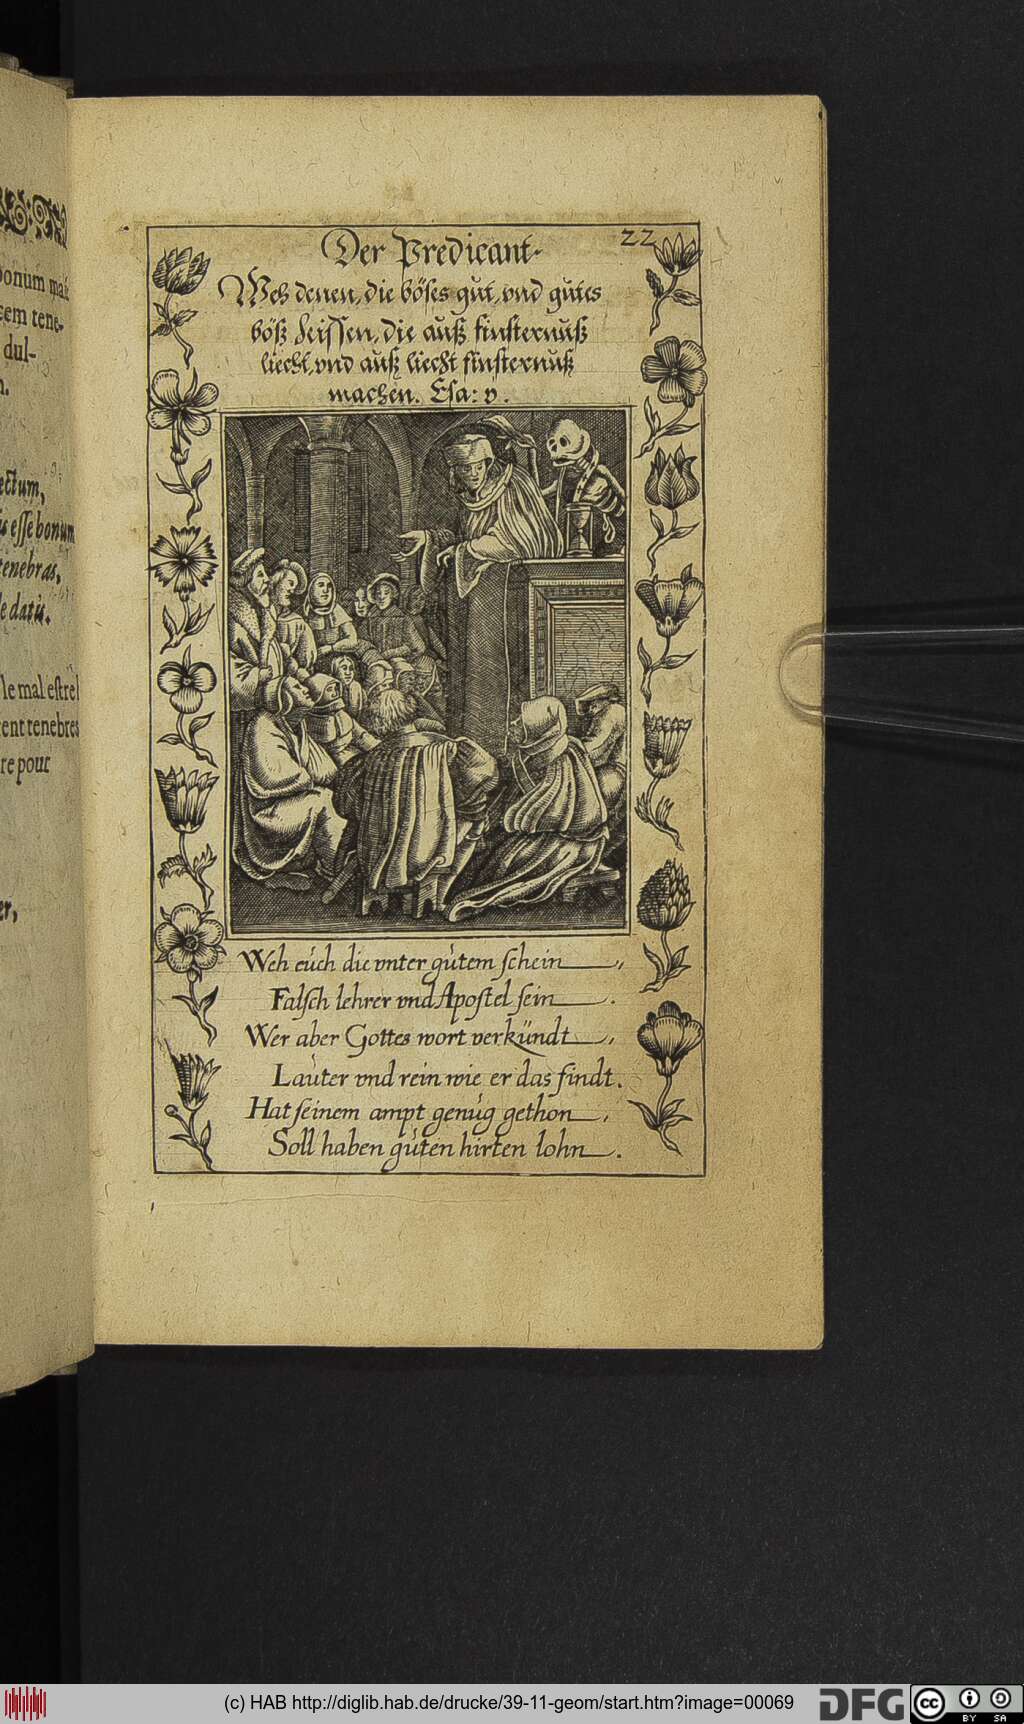 bonum
cem tene-
dul-
ectum,
is esse bonum
tenebras,
le datis.
le mal estre
rent tenebres
re pour
er,
22
Der Predicant.
Weh denen, die böses gůt, vnd gůtes
böß heissen, die auß finsternuß
liecht, vnd auß liecht finsternuß
machen. Esa: v.
Weh eůch die vnter gůtem schein,
Falsch lehrer vnd Apostel sein.
Wer aber Gottes wort verkündt,
Laůter vnd rein wie er das findt.
Hat seinem ampt genůg gethon,
Soll haben gůten hirten lohn.
(c) HAB http://diglib.hab.de/drucke/39-11-geom/start.htm?image=00069
DFG
cc
BY SA